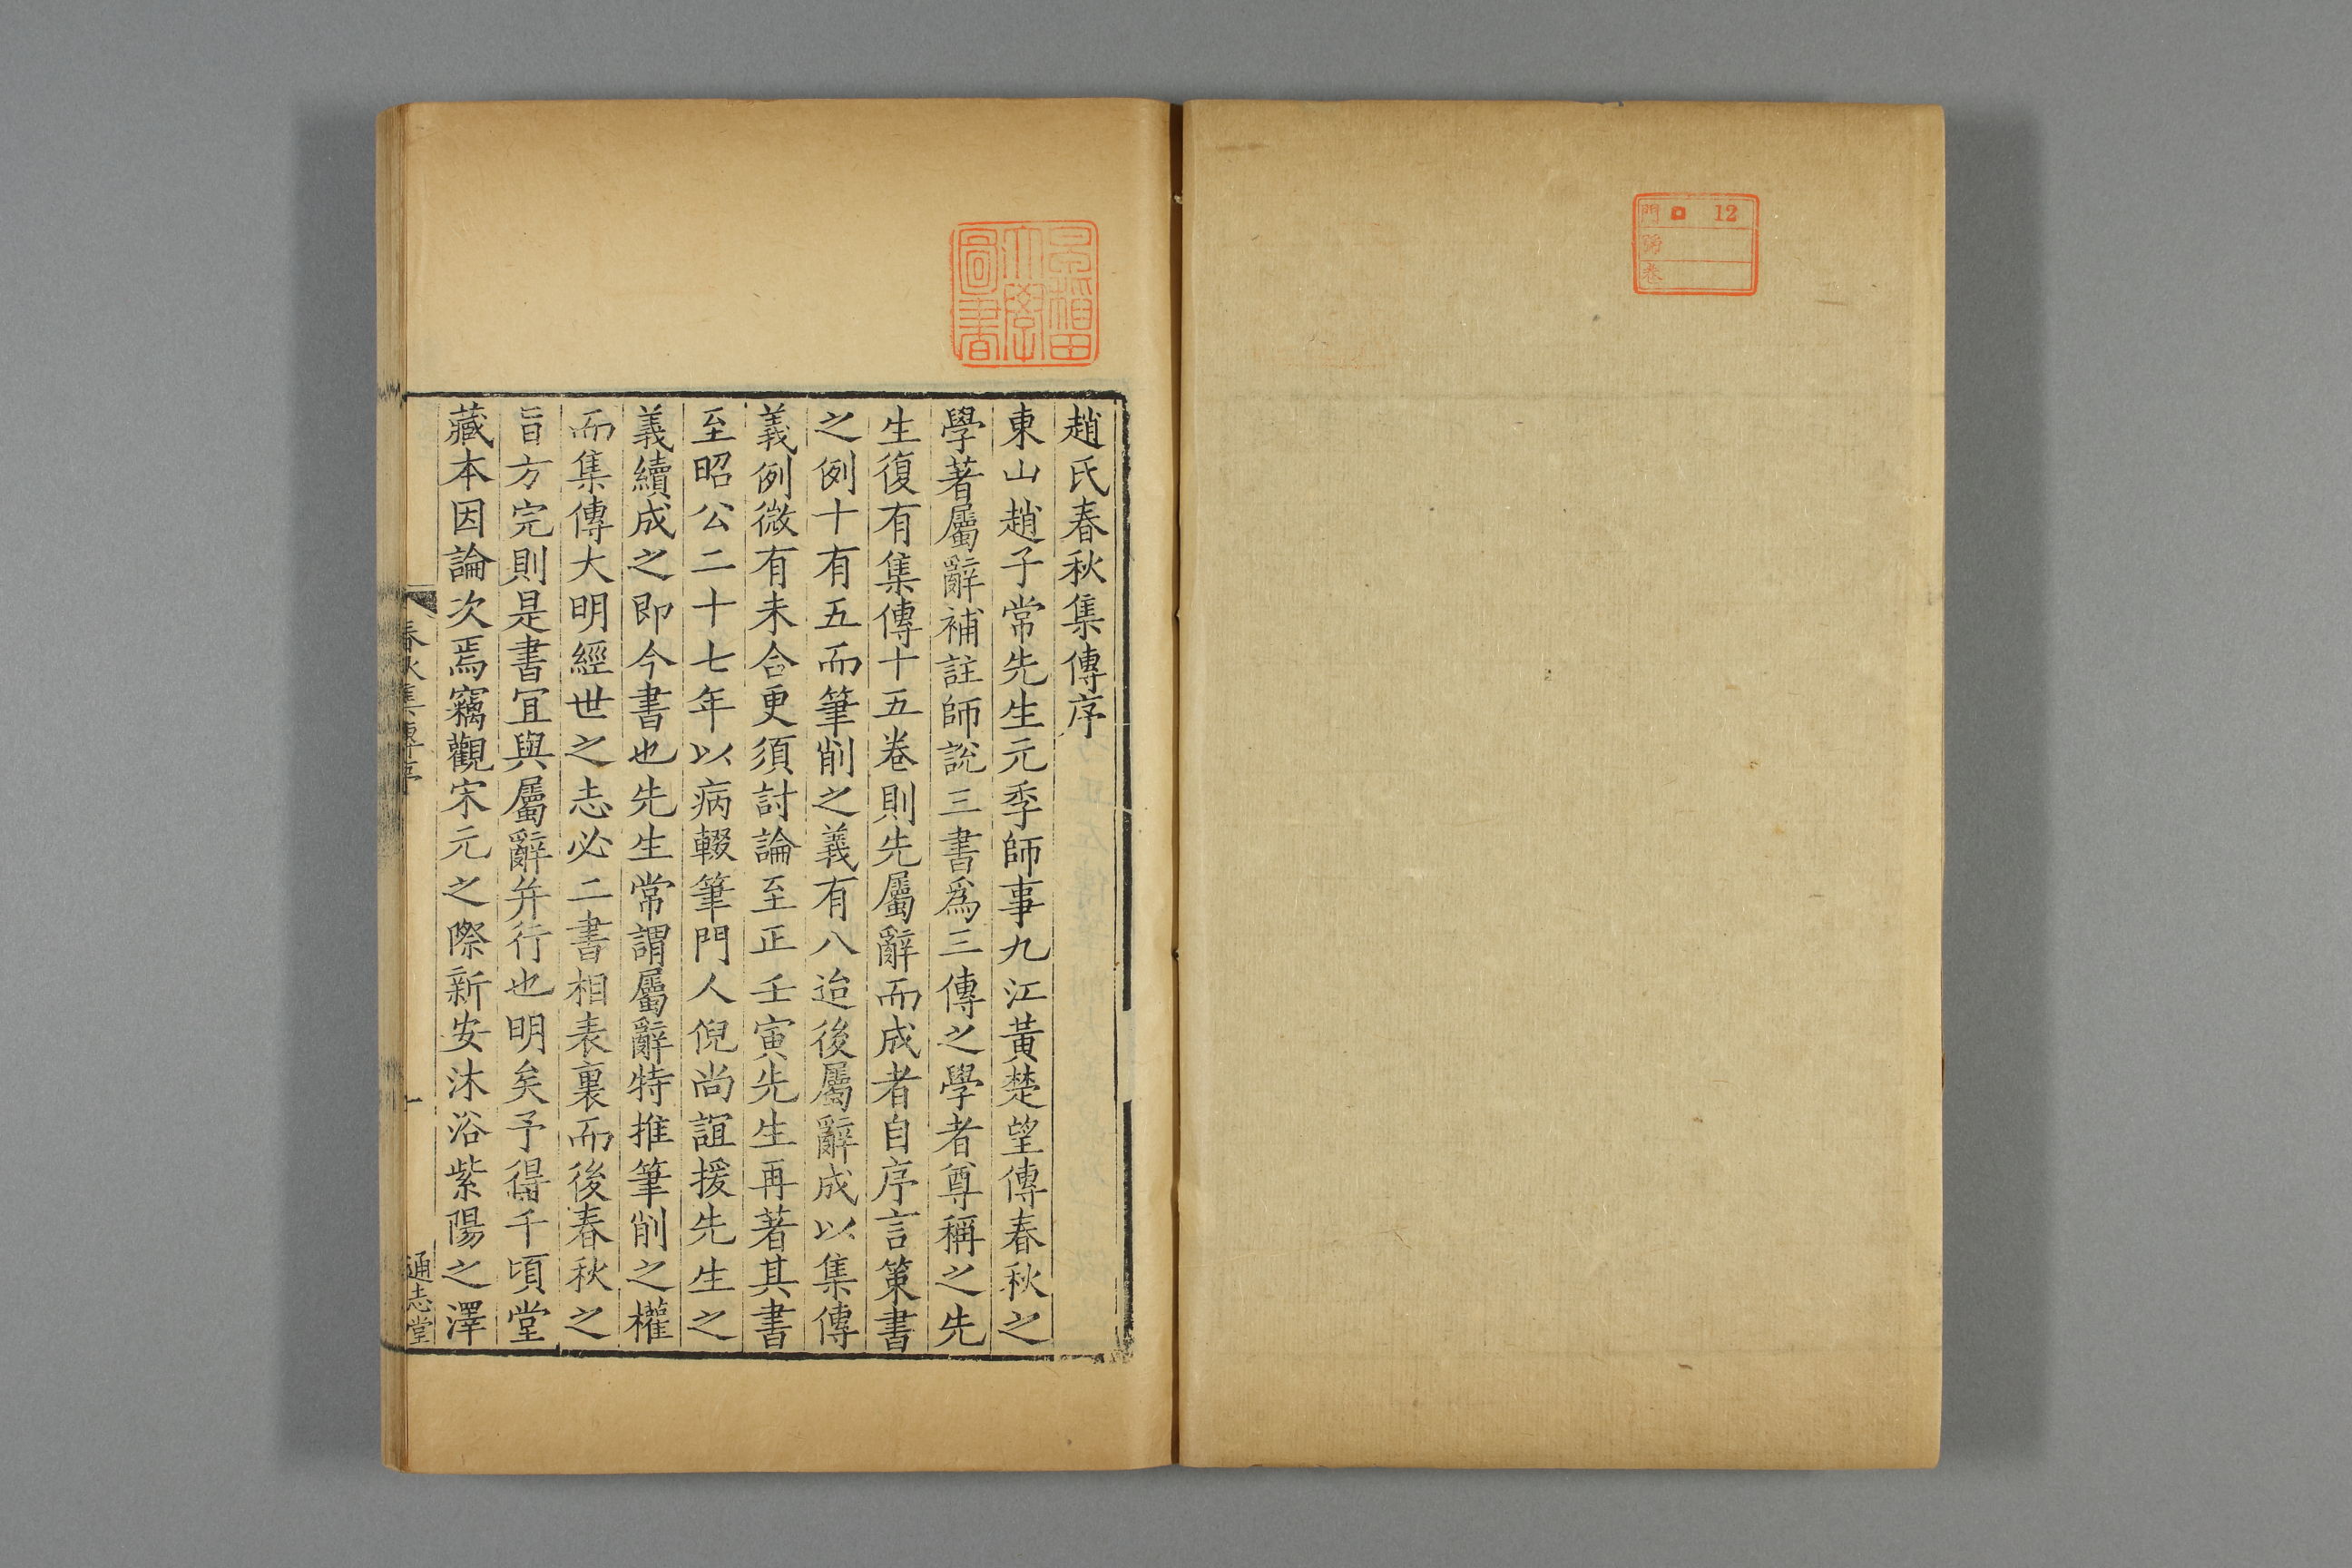 門 ロ 12
號
卷
早稲田
大學
圖書
趙氏春秋集傳序
東山趙子常先生元季師事九江黃楚望傳春秋之
學著屬辭補註師說三書爲三傳之學者尊稱之先
生復有集傳十五卷則先屬辭而成者自序言策書
之例十有五而筆削之義有八迨後屬辭成以集傳
義例微有未合更須討論至正壬寅先生再著其書
至昭公二十七年以病輟筆門人倪尚誼援先生之
義續成之即今書也先生常謂屬辭特推筆削之權
而集傳大明經世之志必二書相表裏而後春秋之
旨方完則是書宜與屬辭并行也明矣予得千頃堂
藏本因論次焉竊觀宋元之際新安沐浴紫陽之澤
春秋集傳序
一
通志堂